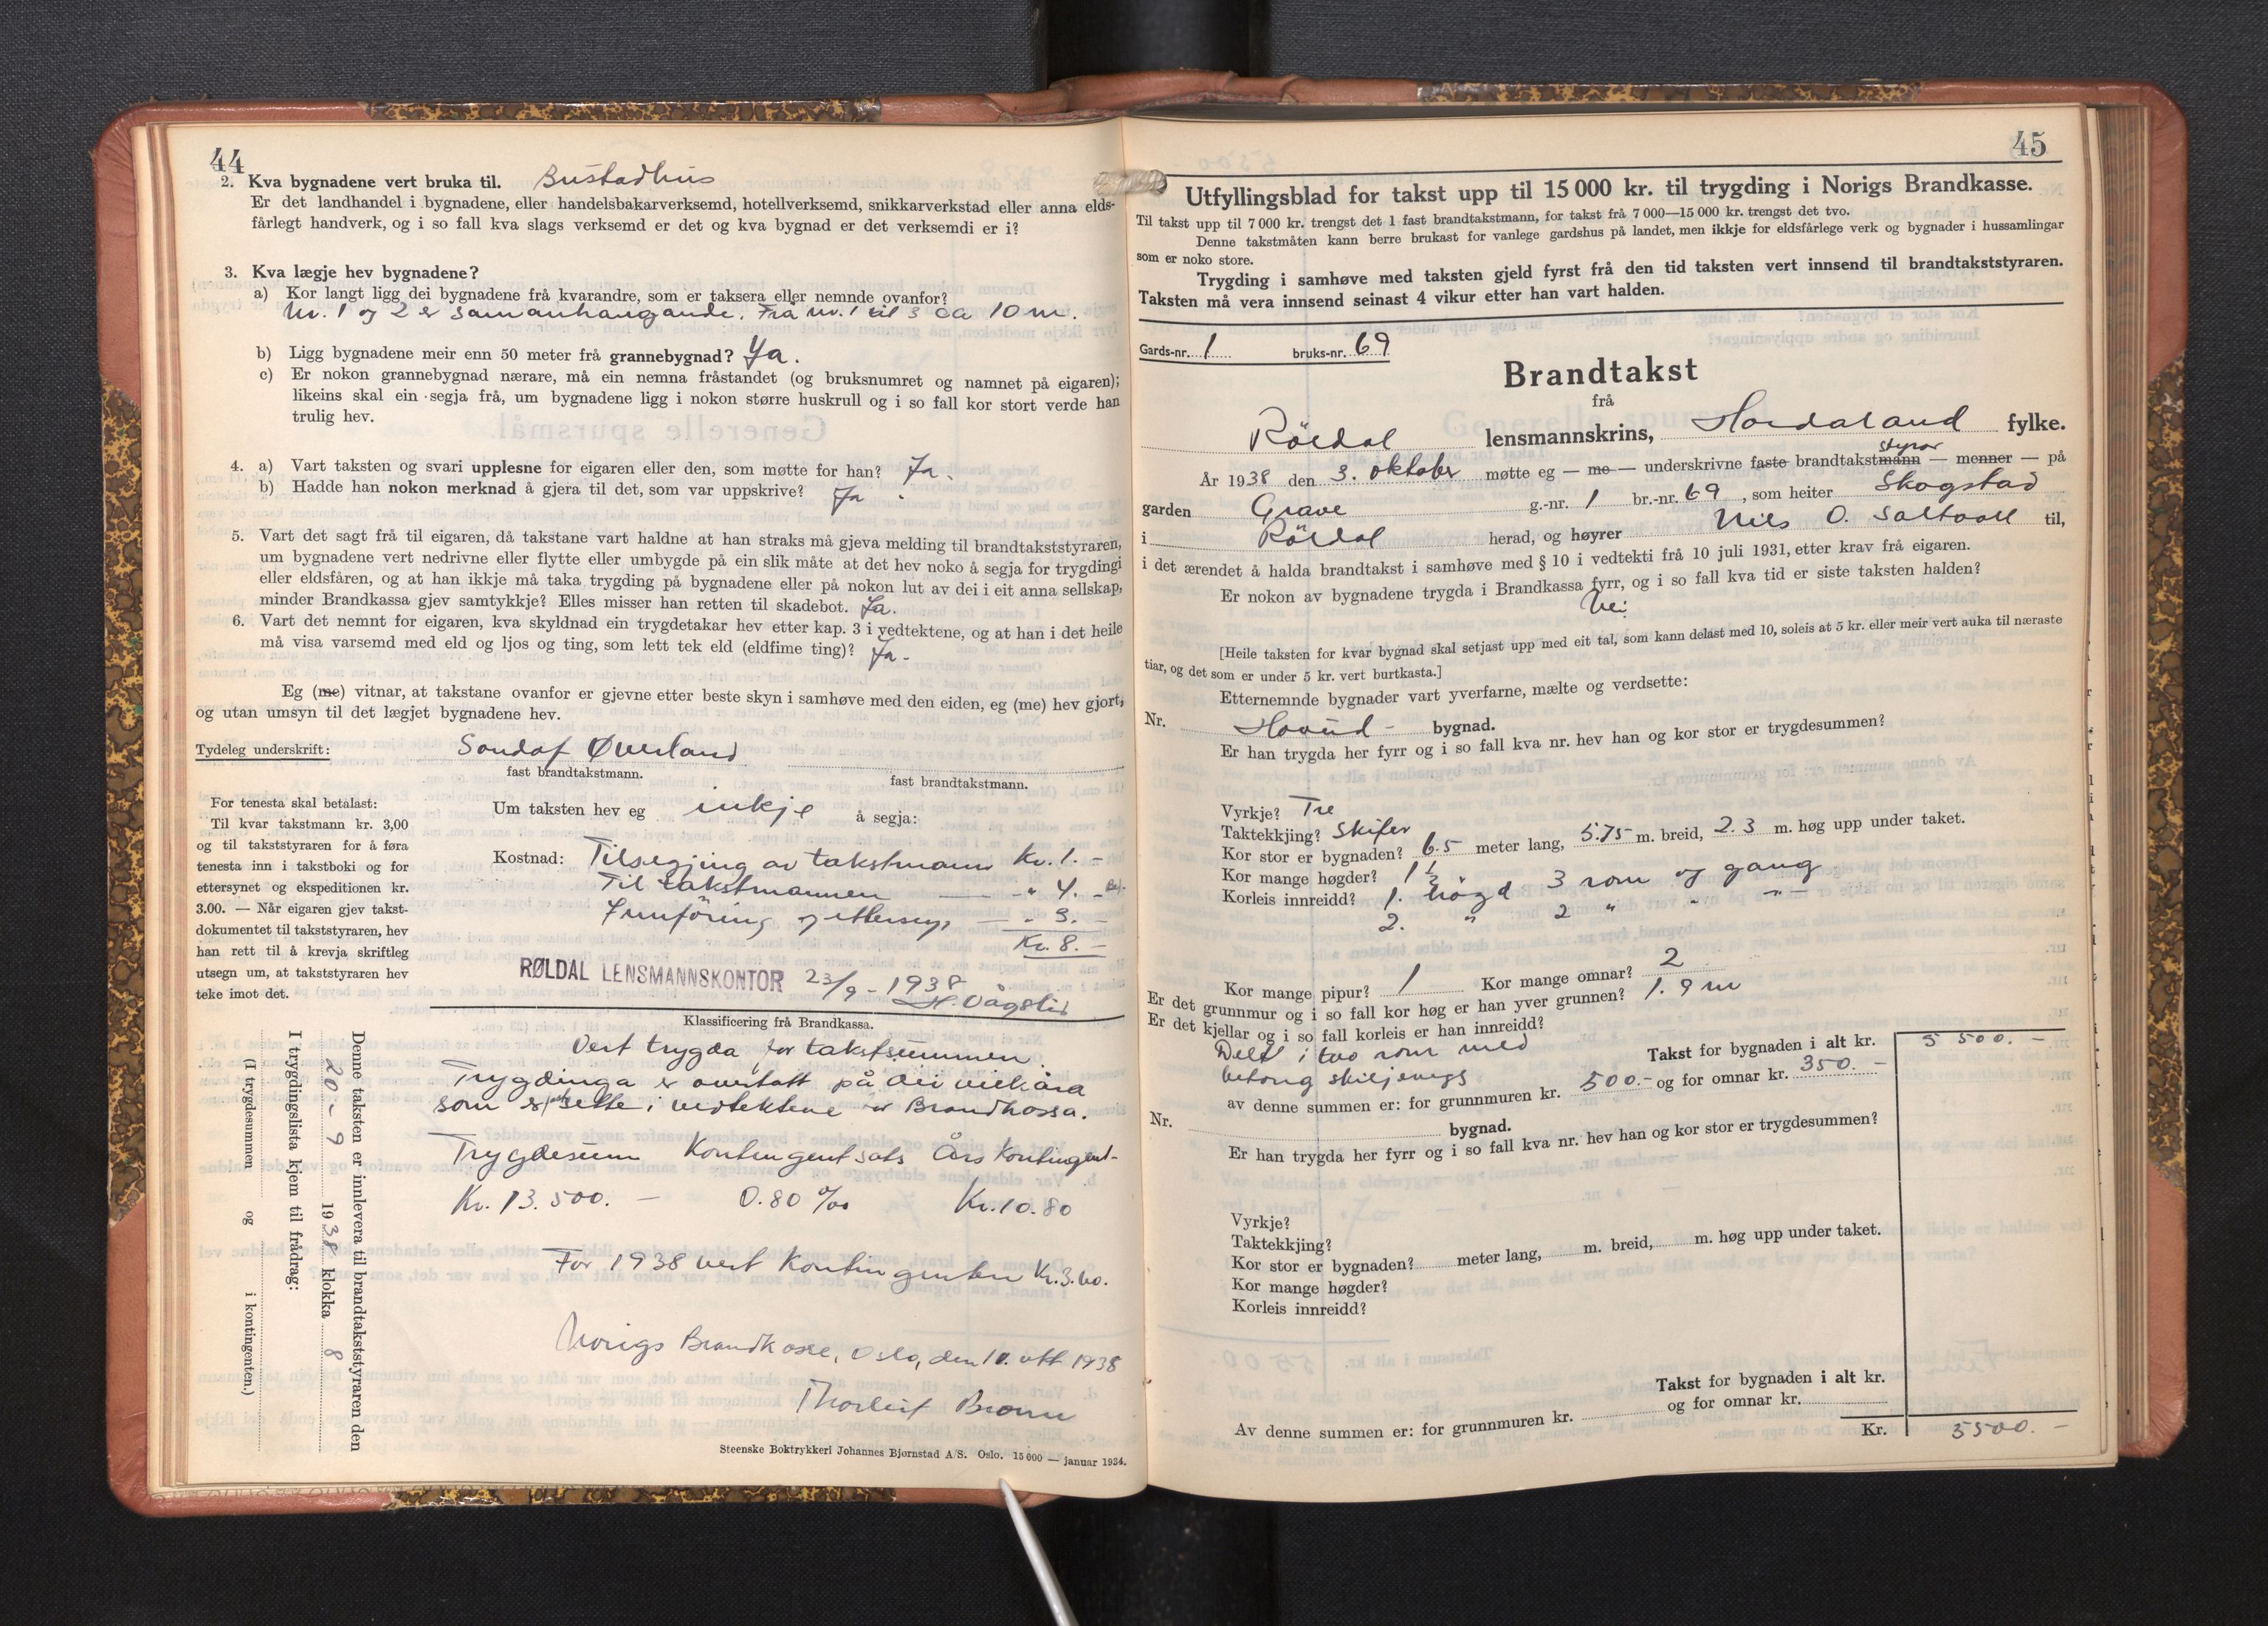 44
2. Kva bygnadene vert bruka til. Bustadhus
Er det landhandel i bygnadene, eller handelsbakarverksemd, hotellverksemd, snikkarverkstad eller anna elds-
fårlegt handverk, og i so fall kva slags verksemd er det og kva bygnad er det verksemdi er i?
3. Kva lægje hev bygnadene?
a) Kor langt ligg dei bygnadene frå kvarandre, som er taksera eller nemnde ovanfor?
Nr. 1 og 2 er samanhangande. Frå nr. 1 til 3 ca 10 m.
b) Ligg bygnadene meir enn 50 meter frå grannebygnad? Ja.
c) Er nokon grannebygnad nærare, må ein nemna fråstandet (og bruksnumret og namnet på eigaren);
likeins skal ein segja frå, um bygnadene ligg i nokon større huskrull og i so fall kor stort verde han
trulig hev.
4. a) Vart taksten og svari upplesne for eigaren eller den, som møtte for han? Ja.
b) Hadde han nokon merknad å gjera til det, som var uppskrive? Ja.
5. Vart det sagt frå til eigaren, då takstane vart haldne at han straks må gjeva melding til brandtakststyraren,
um bygnadene vert nedrivne eller flytte eller umbygde på ein slik måte at det hev noko å segja for trygdingi
eller eldsfåren, og at han ikkje må taka trygding på bygnadene eller på nokon lut av dei i eit anna sellskap,
minder Brandkassa gjev samtykkje? Elles misser han retten til skadebot. Ja.
6. Vart det nemnt for eigaren, kva skyldnad ein trygdetakar hev etter kap. 3 i vedtektene, og at han i det heile
må visa varsemd med eld og ljos og ting, som lett tek eld (eldfime ting)? Ja.
Eg (me) vitnar, at takstane ovanfor er gjevne etter beste skyn i samhøve med den eiden, eg (me) hev gjort,
og utan umsyn til det lægjet bygnadene hev.
Tydeleg underskrift: Sondof Øverland
fast brandtakstmann. fast brandtakstmann.
Um taksten hev eg inkje å segja:
For tenesta skal betalast:
Til kvar takstmann kr. 3,00
og til takststyraren for å føra
tenesta inn i takstboki og for
ettersynet og ekspeditionen kr.
3.00. — Når eigaren gjev takst-
dokumentet til takststyraren, hev
han rett til å krevja skriftleg
utsegn um, at takststyraren hev
teke imot det.
Kostnad: Tilsegjing av takstmann Kr. 1.-
Til takstmannen — " 4.-
Innföring og ettersyn — " 3.-
Kr. 8.-
RØLDAL LENSMANNSKONTOR 23/9 - 1938
H. Vågslid
Klassificering frå Brandkassa.
Vert trygda for takstsummen
Trygdinga er overtatt på dei vilkåra
som er sette i vedtektene for Brandkassa.
Trygdesum Kontingentsats Års Kontingent-
Kr. 13.500.- 0.80 ‰ Kr. 10.80
For 1938 vert Kontingenten Kr. 3.60.
Norigs Brandkasse, Oslo, den 11. okt 1938
Thorleif Bronn
Denne taksten er innlevera til brandtakststyraren den
20 - 9 1938 klokka 8
I trygdingslista kjem til frådrag:
(I trygdesummen og i kontingenten.)
Steenske Boktrykkeri Johannes Bjørnstad A/S. Oslo. 15 000 — januar 1934.
45
Utfyllingsblad for takst upp til 15 000 kr. til trygding i Norigs Brandkasse.
Til takst upp til 7 000 kr. trengst det 1 fast brandtakstmann, for takst frå 7 000—15 000 kr. trengst det tvo.
Denne takstmåten kann berre brukast for vanlege gardshus på landet, men ikkje for eldsfårlege verk og bygnader i hussamlingar
som er noko store.
Trygding i samhøve med taksten gjeld fyrst frå den tid taksten vert innsend til brandtakststyraren.
Taksten må vera innsend seinast 4 vikur etter han vart halden.
Gards-nr. 1 bruks-nr. 69
Brandtakst
frå
Röldal lensmannskrins, Hordaland fylke.
styrar
År 1938 den 3. oktober møtte eg — me — underskrivne faste brandtakstmann — menner — på
garden Grave g.-nr. 1 br.-nr. 69, som heiter Skogstad
i Röldal herad, og høyrer Nils O. Saltvoll til,
i det ærendet å halda brandtakst i samhøve med § 10 i vedtekti frå 10 juli 1931, etter krav frå eigaren.
Er nokon av bygnadene trygda i Brandkassa fyrr, og i so fall kva tid er siste taksten halden?
Nei
[Heile taksten for kvar bygnad skal setjast upp med eit tal, som kann delast med 10, soleis at 5 kr. eller meir vert auka til næraste
tiar, og det som er under 5 kr. vert burtkasta.]
Etternemnde bygnader vart yverfarne, mælte og verdsette:
Nr. Hovud- bygnad.
Er han trygda her fyrr og i so fall kva nr. hev han og kor stor er trygdesummen?
Vyrkje? Tre
Taktekkjing? Skifer
Kor stor er bygnaden? 6.5 meter lang, 5.75 m. breid, 2.3 m. høg upp under taket.
Kor mange høgder? 1 1/2
Korleis innreidd? 1. högd 3 rom og gang
2. " 2 " " "-
Kor mange pipur? 1 Kor mange omnar? 2
Er det grunnmur og i so fall kor høg er han yver grunnen? 1.9 m
Er det kjellar og i so fall korleis er han innreidd?
Delt i two rom med
betong skiljevegg
Takst for bygnaden i alt kr. 5 500.-
av denne summen er: for grunnmuren kr. 500.- og for omnar kr. 350.-
Nr. bygnad.
Er han trygda her fyrr og i so fall kva nr. hev han og kor stor er trygdesummen?
Vyrkje?
Taktekkjing?
Kor stor er bygnaden? meter lang, m. breid, m. høg upp under taket.
Kor mange høgder?
Korleis innreidd?
Takst for bygnaden i alt kr.
Av denne summen er: for grunnmuren kr. og for omnar kr.
Kr. 5500.-